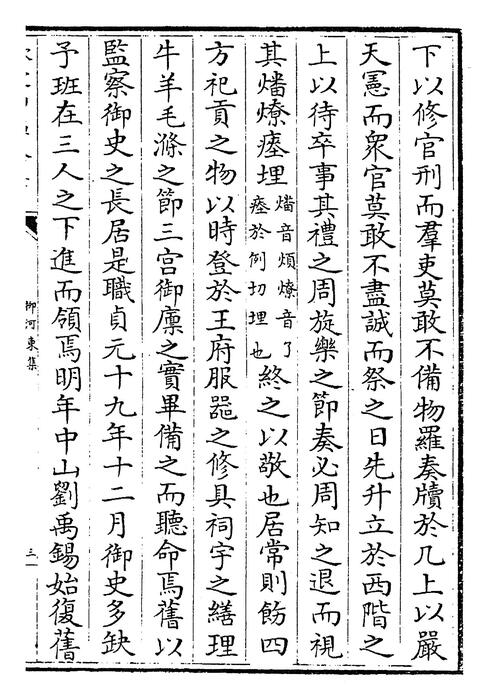 下以修官刑而羣吏莫敢不備物羅奏牘於几上以嚴
天憲而衆官莫敢不盡誠而祭之日先升立於西階之
上以待卒事其禮之周旋樂之節奏必周知之退而視
其燔燎瘞埋燔音煩燎音了瘞於例切埋也終之以敬也居常則飭四
方祀貢之物以時登於王府服器之修具祠宇之繕理
牛羊毛滌之節三宫御廩之實畢備之而聽命焉舊以
監察御史之長居是職貞元十九年十二月御史多缺
予班在三人之下進而領焉明年中山劉禹錫始復舊
柳河東集
三